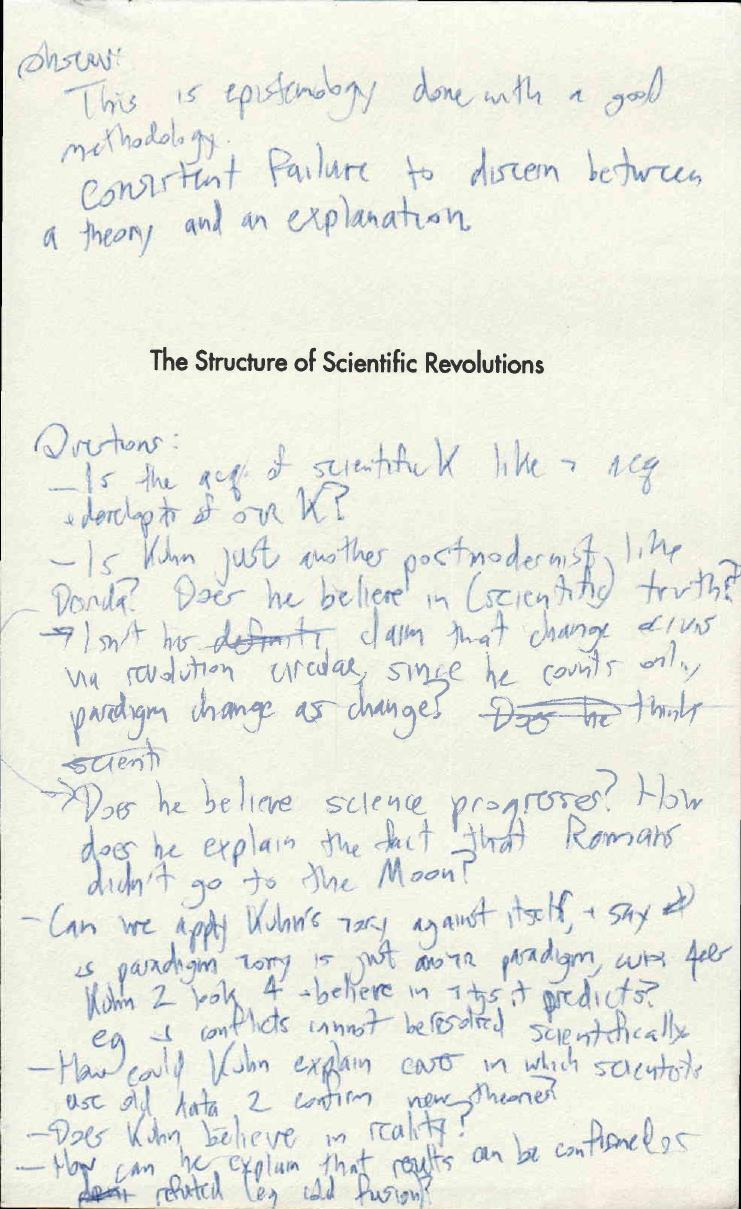 observ:
This is epistemology done with a good
methodology.
Consistent failure to discern between
a theory and an explanation
The Structure of Scientific Revolutions
Questions:
– Is the acq. of scientific K like acq
+ of our K?
– Is Kuhn just another postmodernist, like
Derrida? Does he believe in (scientific) truth?
→ Isn't his definiti claim that change occurs
via revolution circular, since he counts only
paradigm change as change? Does he think
scient
→ Does he believe science progresses? How
does he explain the fact that Romans
didn't go to the Moon?
– Can we apply Kuhn's against itself, + say
is paradigm is just paradigm,
Kuhn 2 look 4 + believe in it predicts?
eg conflicts cannot be resolved scientifically
– How could Kuhn explain cases in which scientists
use old data 2 confirm new theories?
– Does Kuhn believe in reality?
– How can he explain that results can be confirmed or
refuted (eg cold fusion?